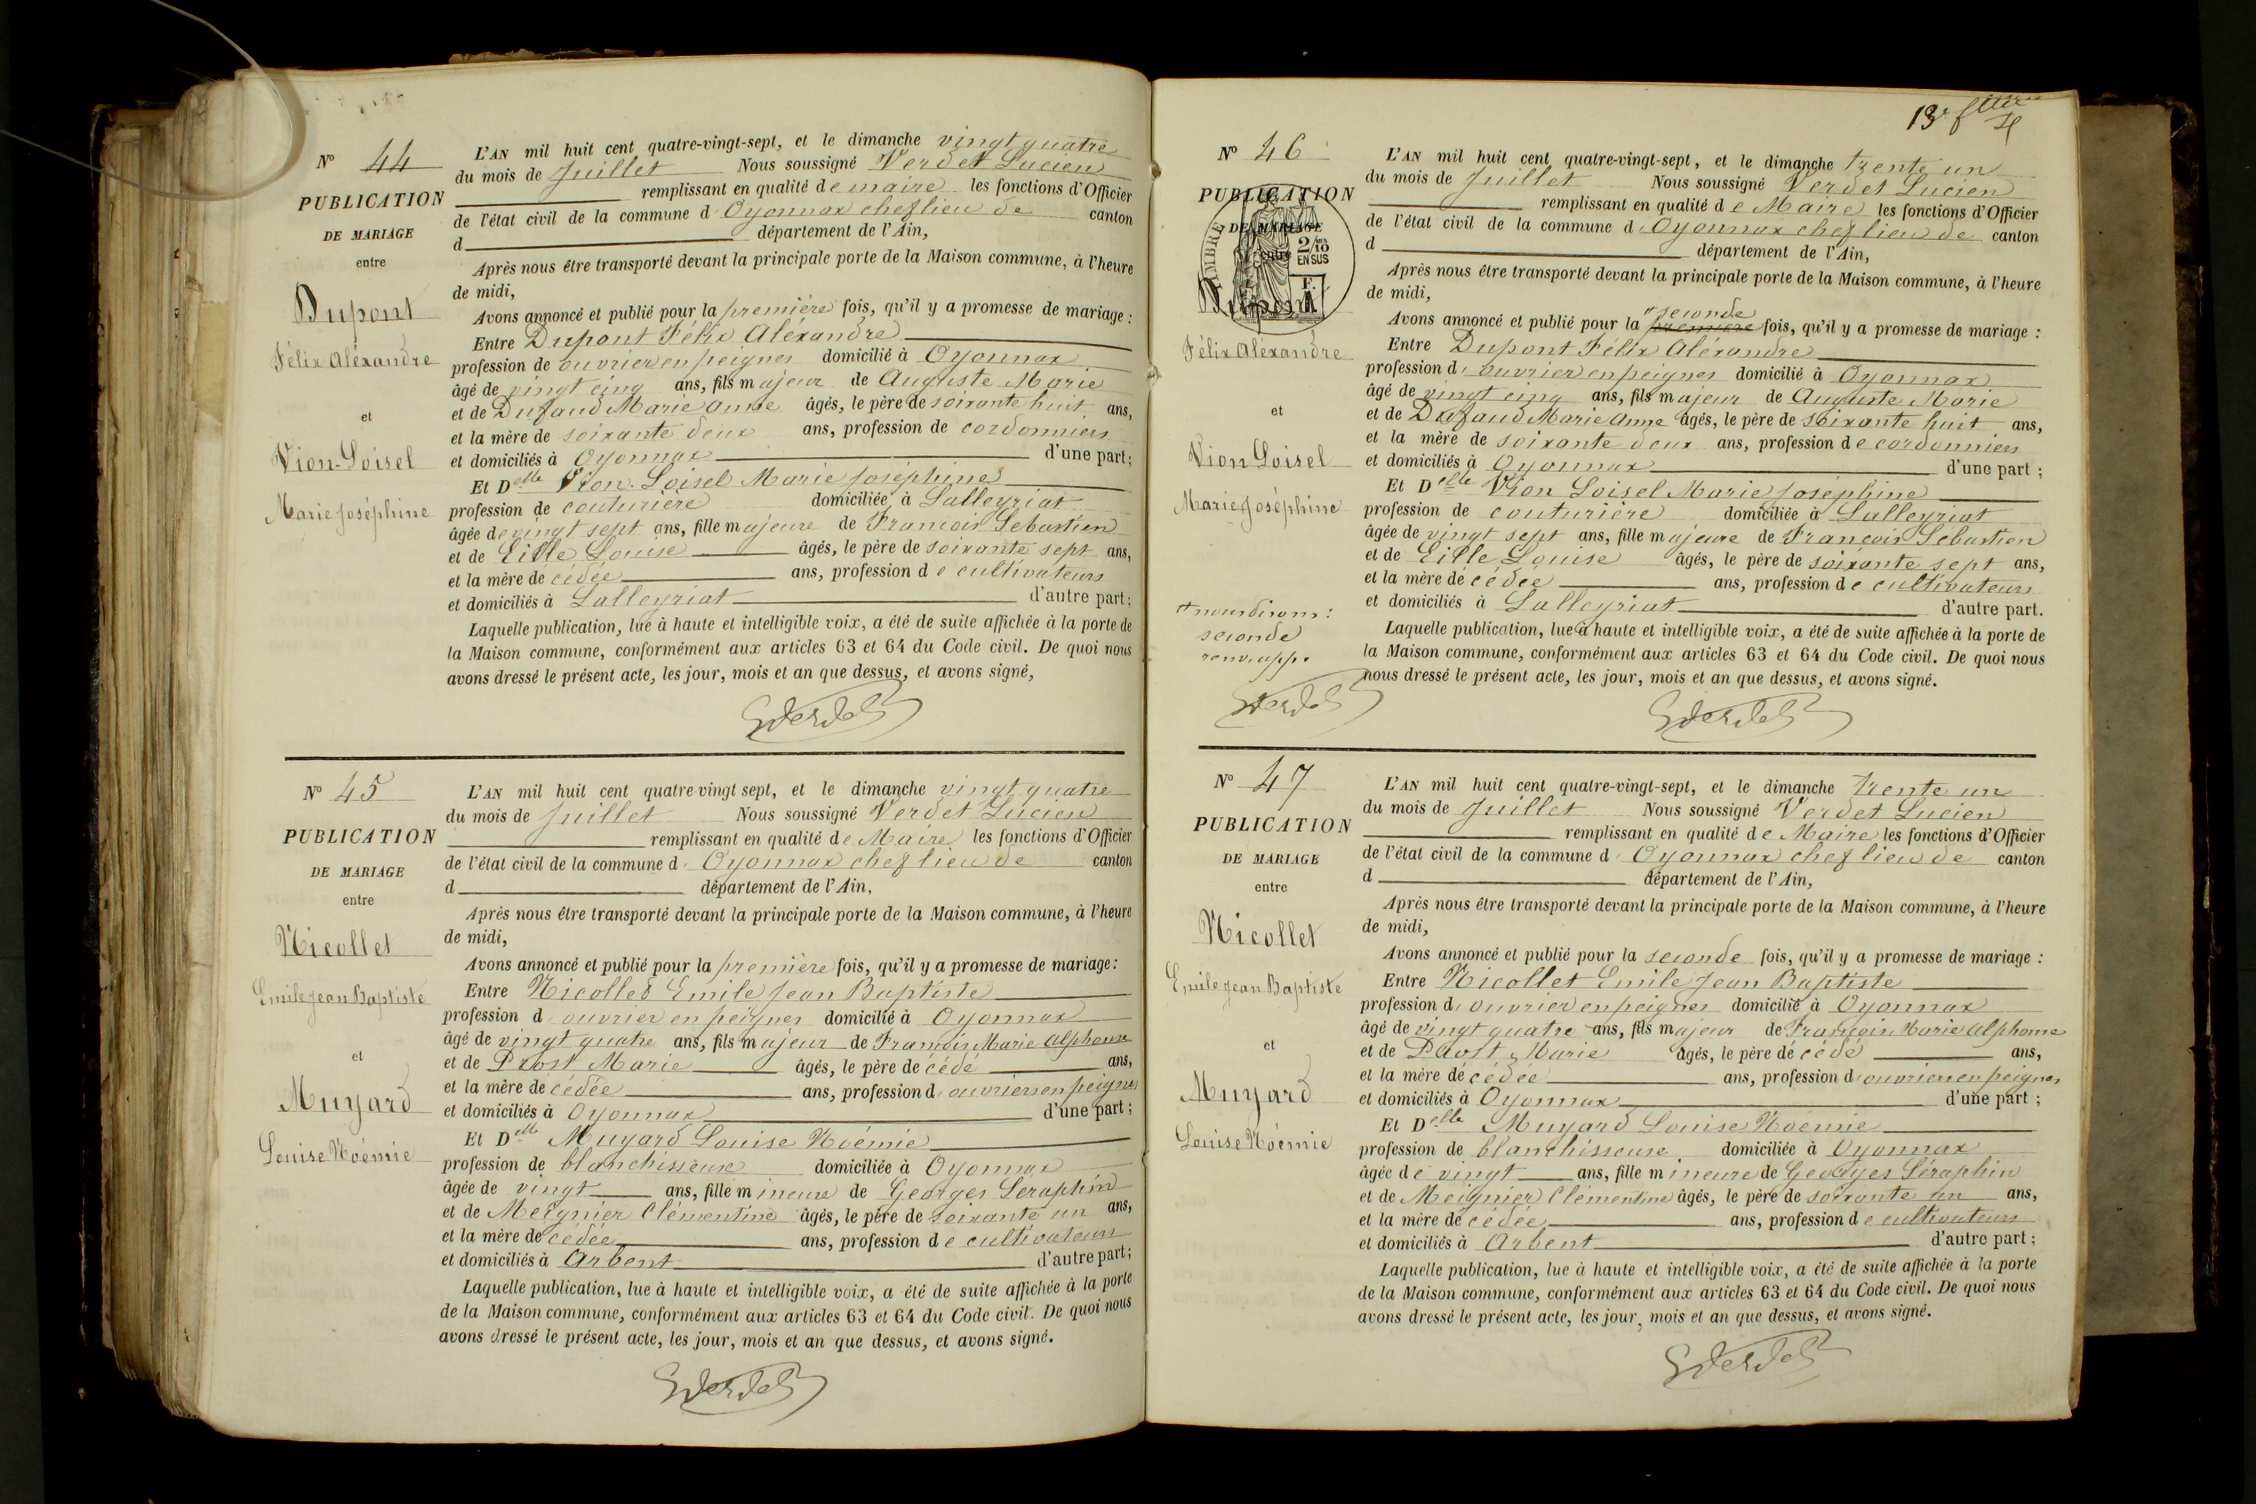 N° 44
PUBLICATION
DE MARIAGE
entre
Dupont
Félix Aléxandre
et
Vion-Loisel
Marie Joséphine
L'AN mil huit cent quatre-vingt-sept, et le dimanche vingt quatre
du mois de Juillet Nous soussigné Verdet Lucien
remplissant en qualité de maire les fonctions d'Officier
de l'état civil de la commune d'Oyonnax chef lieu de canton
d département de l'Ain,
Après nous être transporté devant la principale porte de la Maison commune, à l'heure
de midi,
Avons annoncé et publié pour la première fois, qu'il y a promesse de mariage :
Entre Dupont Félix Aléxandre
profession de ouvrier en peignes domicilié à Oyonnax
âgé de vingt cinq ans, fils majeur de Auguste Marie
et de Dufaud Marie Anne âgés, le père de soixante huit ans,
et la mère de soixante deux ans, profession de cordonniers
et domiciliés à Oyonnax d'une part;
Et Delle Vion-Loisel Marie Joséphine
profession de couturière domiciliée à Lalleyriat
âgée de vingt sept ans, fille majeure de François Sébastien
et de Eille Louise âgés, le père de soixante sept ans,
et la mère de cédée ans, profession de cultivateurs
et domiciliés à Lalleyriat d'autre part;
Laquelle publication, lue à haute et intelligible voix, a été de suite affichée à la porte de
la Maison commune, conformément aux articles 63 et 64 du Code civil. De quoi nous
avons dressé le présent acte, les jour, mois et an que dessus, et avons signé,
Verdet
N° 45
PUBLICATION
DE MARIAGE
entre
Nicollet
Emile Jean Baptiste
et
Muyard
Louise Noémie
L'AN mil huit cent quatre-vingt sept, et le dimanche vingt quatre
du mois de Juillet Nous soussigné Verdet Lucien
remplissant en qualité de Maire les fonctions d'Officier
de l'état civil de la commune d'Oyonnax chef lieu de canton
d département de l'Ain,
Après nous être transporté devant la principale porte de la Maison commune, à l'heure
de midi,
Avons annoncé et publié pour la première fois, qu'il y a promesse de mariage:
Entre Nicollet Emile Jean Baptiste
profession d'ouvrier en peignes domicilié à Oyonnax
âgé de vingt quatre ans, fils majeur de François Marie Alphonse
et de Prost Marie âgés, le père de cédé ans,
et la mère de cédée ans, profession d'ouvriers en peignes
et domiciliés à Oyonnax d'une part;
Et Delle Muyard Louise Noémie
profession de blanchisseuse domiciliée à Oyonnax
âgée de vingt ans, fille mineure de Georges Séraphin
et de Meignier Clémentine âgés, le père de soixante un ans,
et la mère de cédée ans, profession de cultivateurs
et domiciliés à Arbent d'autre part;
Laquelle publication, lue à haute et intelligible voix, a été de suite affichée à la porte
de la Maison commune, conformément aux articles 63 et 64 du Code civil. De quoi nous
avons dressé le présent acte, les jour, mois et an que dessus, et avons signé.
Verdet
13e
N° 46
PUBLICATION
DE MARIAGE
entre
TIMBRE
2/10
EN SUS
Dupont
Félix Aléxandre
et
Vion Loisel
Marie Joséphine
+ nous disons:
seconde
renv. app.
Verdet
L'AN mil huit cent quatre-vingt-sept, et le dimanche trente un
du mois de Juillet Nous soussigné Verdet Lucien
remplissant en qualité de Maire les fonctions d'Officier
de l'état civil de la commune d'Oyonnax chef lieu de canton
d département de l'Ain,
Après nous être transporté devant la principale porte de la Maison commune, à l'heure
de midi,
seconde
Avons annoncé et publié pour la première fois, qu'il y a promesse de mariage :
Entre Dupont Félix Aléxandre
profession d'ouvrier en peignes domicilié à Oyonnax
âgé de vingt cinq ans, fils majeur de Auguste Marie
et de Dufaud Marie Anne âgés, le père de soixante huit ans,
et la mère de soixante deux ans, profession de cordonniers
et domiciliés à Oyonnax d'une part ;
Et Delle Vion Loisel Marie Joséphine
profession de couturière domiciliée à Lalleyriat
âgée de vingt sept ans, fille majeure de François Sébastien
et de Eille Louise âgés, le père de soixante sept ans,
et la mère dé cédée ans, profession de cultivateurs
et domiciliés à Lalleyriat d'autre part.
Laquelle publication, lue à haute et intelligible voix, a été de suite affichée à la porte de
la Maison commune, conformément aux articles 63 et 64 du Code civil. De quoi nous
nous dressé le présent acte, les jour, mois et an que dessus, et avons signé.
Verdet
N° 47
PUBLICATION
DE MARIAGE
entre
Nicollet
Emile Jean Baptiste
et
Muyard
Louise Noémie
L'AN mil huit cent quatre-vingt-sept, et le dimanche trente un
du mois de Juillet Nous soussigné Verdet Lucien
remplissant en qualité de Maire les fonctions d'Officier
de l'état civil de la commune d'Oyonnax chef lieu de canton
d département de l'Ain,
Après nous être transporté devant la principale porte de la Maison commune, à l'heure
de midi,
Avons annoncé et publié pour la seconde fois, qu'il y a promesse de mariage :
Entre Nicollet Emile Jean Baptiste
profession d'ouvrier en peignes domicilié à Oyonnax
âgé de vingt quatre ans, fils majeur de François Marie Alphonse
et de Prost Marie âgés, le père dé cédé ans,
et la mère dé cédée ans, profession d'ouvriers en peignes
et domiciliés à Oyonnax d'une part ;
Et Delle Muyard Louise Noémie
profession de blanchisseuse domiciliée à Oyonnax
âgée de vingt ans, fille mineure de Georges Séraphin
et de Meignier Clémentine âgés, le père de soixante un ans,
et la mère dé cédée ans, profession de cultivateurs
et domiciliés à Arbent d'autre part ;
Laquelle publication, lue à haute et intelligible voix, a été de suite affichée à la porte
de la Maison commune, conformément aux articles 63 et 64 du Code civil. De quoi nous
avons dressé le présent acte, les jour, mois et an que dessus, et avons signé.
Verdet